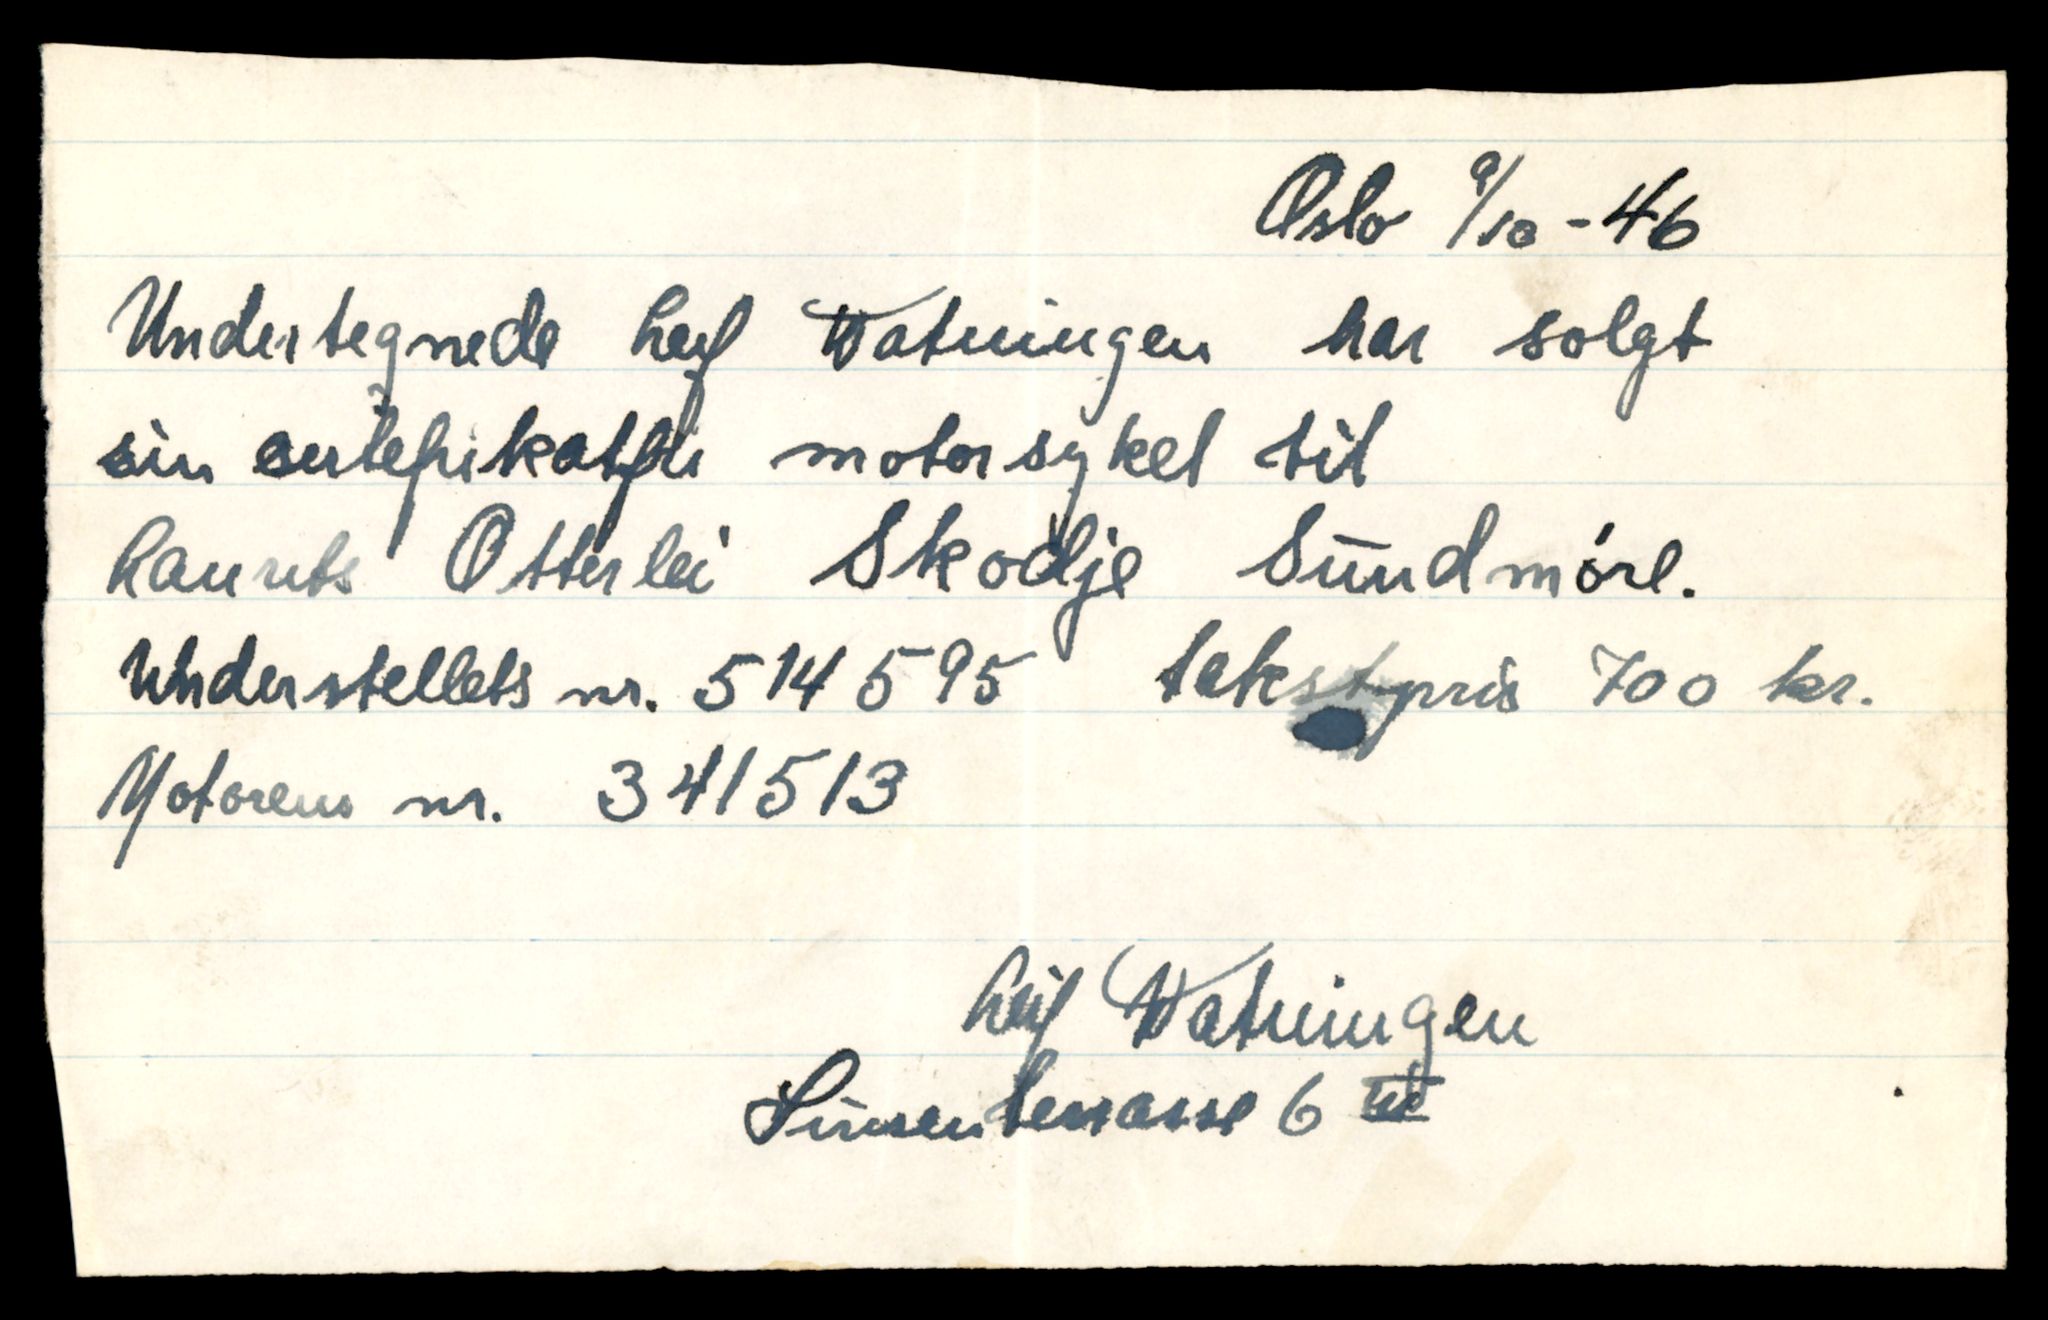 Oslo 9/10 - 46
Undertegnede Leif Watningen har solgt
sin sertefikatfri motorsykel til
Laurits Otterlei Skodje Sündmöre.
Understellets nr. 514595 takstpris 700 kr.
Motorens nr. 341513
Leif Watningen
Sinsenterrasse 6 III